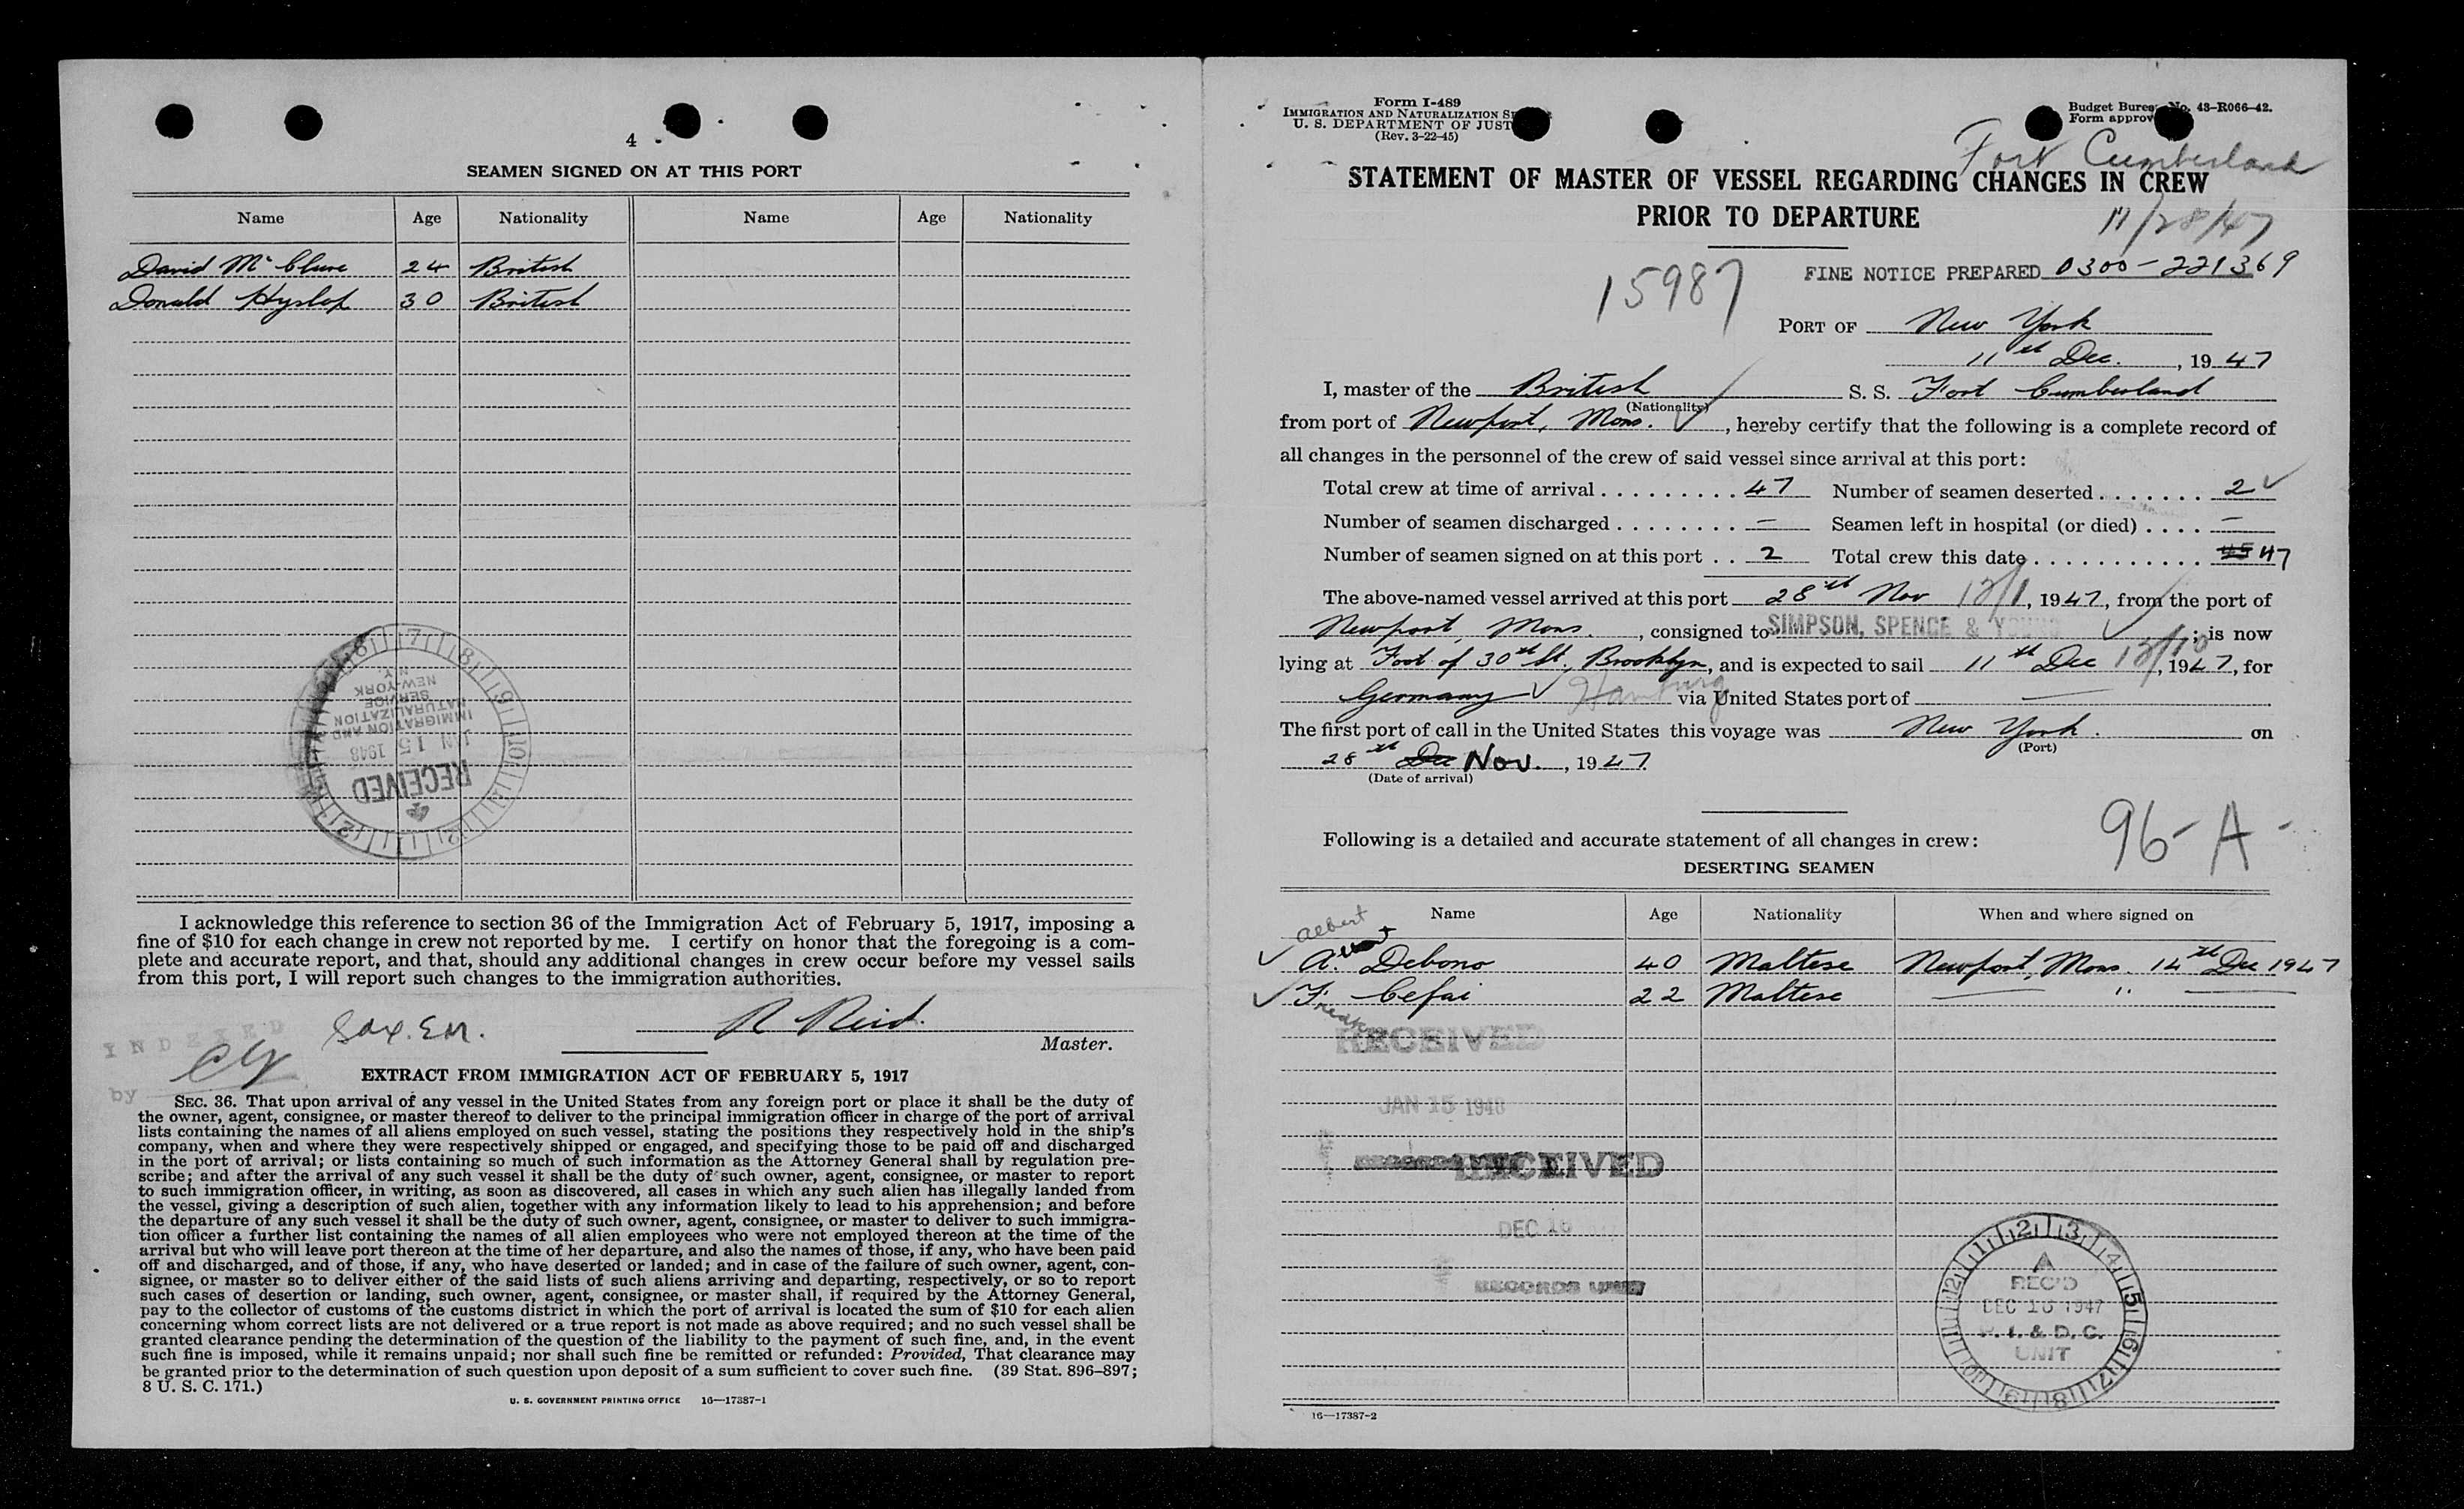 4
SEAMEN SIGNED ON AT THIS PORT
Name Age Nationality Name Age Nationality
David McClure 24 British
Donald Hyslop 30 British
7 8 9 10 11 12
NEW YORK
N.Y.
SERVICE
NATURALIZATION
IMMIGRATION AND
JAN 15 1948
RECEIVED
I acknowledge this reference to section 36 of the Immigration Act of February 5, 1917, imposing a
fine of $10 for each change in crew not reported by me. I certify on honor that the foregoing is a com-
plete and accurate report, and that, should any additional changes in crew occur before my vessel sails
from this port, I will report such changes to the immigration authorities.
R Reid.
Master.
INDEXED
by
EXTRACT FROM IMMIGRATION ACT OF FEBRUARY 5, 1917
SEC. 36. That upon arrival of any vessel in the United States from any foreign port or place it shall be the duty of
the owner, agent, consignee, or master thereof to deliver to the principal immigration officer in charge of the port of arrival
lists containing the names of all aliens employed on such vessel, stating the positions they respectively hold in the ship's
company, when and where they were respectively shipped or engaged, and specifying those to be paid off and discharged
in the port of arrival; or lists containing so much of such information as the Attorney General shall by regulation pre-
scribe; and after the arrival of any such vessel it shall be the duty of such owner, agent, consignee, or master to report
to such immigration officer, in writing, as soon as discovered, all cases in which any such alien has illegally landed from
the vessel, giving a description of such alien, together with any information likely to lead to his apprehension; and before
the departure of any such vessel it shall be the duty of such owner, agent, consignee, or master to deliver to such immigra-
tion officer a further list containing the names of all alien employees who were not employed thereon at the time of the
arrival but who will leave port thereon at the time of her departure, and also the names of those, if any, who have been paid
off and discharged, and of those, if any, who have deserted or landed; and in case of the failure of such owner, agent, con-
signee, or master so to deliver either of the said lists of such aliens arriving and departing, respectively, or so to report
such cases of desertion or landing, such owner, agent, consignee, or master shall, if required by the Attorney General,
pay to the collector of customs of the customs district in which the port of arrival is located the sum of $10 for each alien
concerning whom correct lists are not delivered or a true report is not made as above required; and no such vessel shall be
granted clearance pending the determination of the question of the liability to the payment of such fine, and, in the event
such fine is imposed, while it remains unpaid; nor shall such fine be remitted or refunded: Provided, That clearance may
be granted prior to the determination of such question upon deposit of a sum sufficient to cover such fine. (39 Stat. 896–897;
8 U. S. C. 171.)
U. S. GOVERNMENT PRINTING OFFICE 16—17387-1
Form I-489
IMMIGRATION AND NATURALIZATION
U. S. DEPARTMENT OF JUST
(Rev. 3-22-45)
Budget Bureau No. 43–R066–42.
Form approv
Fort Cumberland
STATEMENT OF MASTER OF VESSEL REGARDING CHANGES IN CREW
PRIOR TO DEPARTURE
11/28/47
15987
FINE NOTICE PREPARED 0300-221369
PORT OF New York
11th Dec., 1947
I, master of the British S. S. Fort Cumberland
(Nationality)
from port of Newport, Mons., hereby certify that the following is a complete record of
all changes in the personnel of the crew of said vessel since arrival at this port:
Total crew at time of arrival . . . . . . . . . 47 Number of seamen deserted . . . . . . . 2
Number of seamen discharged . . . . . . . . — Seamen left in hospital (or died) . . . . —
Number of seamen signed on at this port . . 2 Total crew this date . . . . . . . . . . . 45 47
The above-named vessel arrived at this port 28th Nov 12/1, 1947, from the port of
Newport, Mons., consigned to SIMPSON, SPENCE & YOUNG; is now
lying at Foot of 30th St., Brooklyn, and is expected to sail 11th Dec 12/10, 1947, for
Germany Hamburg via United States port of —
The first port of call in the United States this voyage was New York. on
(Port)
28th Dec Nov., 1947
(Date of arrival)
96-A-
Following is a detailed and accurate statement of all changes in crew:
DESERTING SEAMEN
Name Age Nationality When and where signed on
Albert
A. Debono 40 Maltese Newport, Mons. 14th Dec 1947
F. Cefai 22 Maltese — " —
RECEIVED
JAN 15 1948
RECEIVED
DEC 16
RECORDS UNIT
12 1 2 3 4 5 6 7 8 9 10 11
A
REC'D
DEC 16 1947
P. I. & D. C.
UNIT
16—17387-2